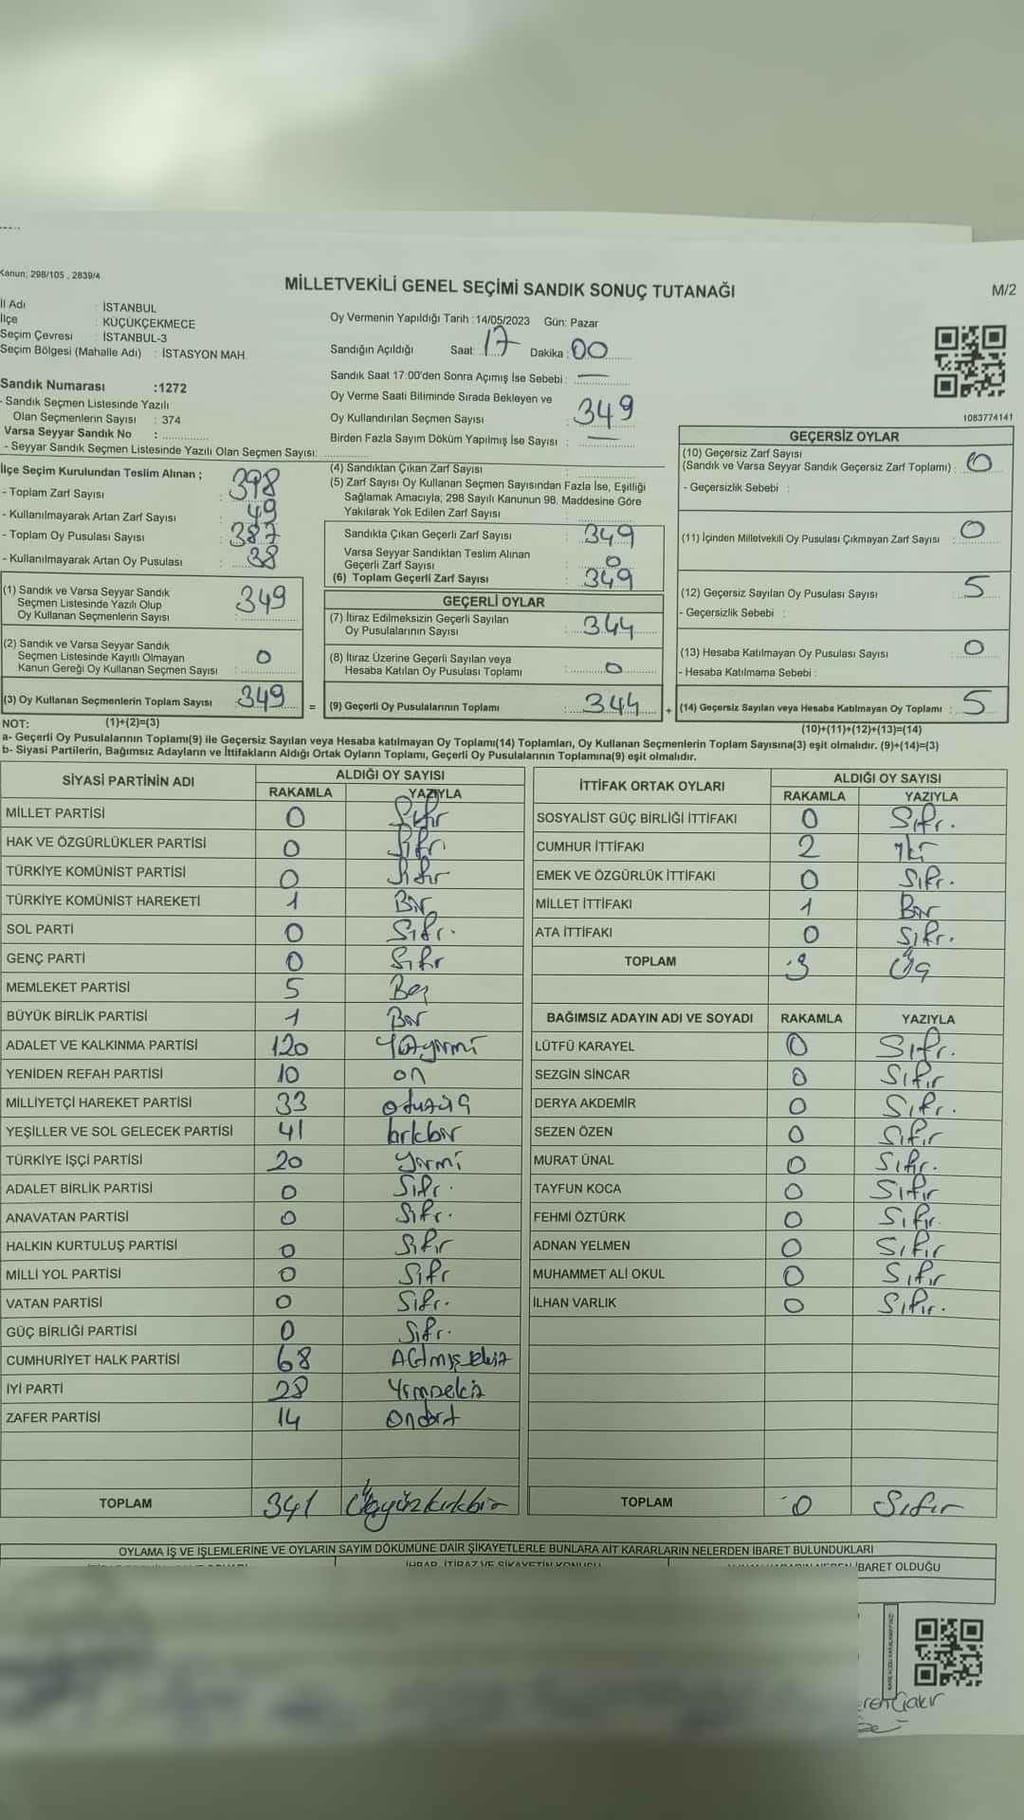 Kanun: 298/105 , 2839/4
MİLLETVEKİLİ GENEL SEÇİMİ SANDIK SONUÇ TUTANAĞI
M/2
İl Adı : İSTANBUL
İlçe : KÜÇÜKÇEKMECE
Seçim Çevresi : İSTANBUL-3
Seçim Bölgesi (Mahalle Adı) : İSTASYON MAH.
Oy Vermenin Yapıldığı Tarih :14/05/2023 Gün: Pazar
Sandığın Açıldığı Saat: 17 Dakika : 00
Sandık Saat 17:00'den Sonra Açımış İse Sebebi : —
Oy Verme Saati Bitiminde Sırada Bekleyen ve
Oy Kullandırılan Seçmen Sayısı : 349
Birden Fazla Sayım Döküm Yapılmış İse Sayısı : —
1083774141
Sandık Numarası :1272
- Sandık Seçmen Listesinde Yazılı
Olan Seçmenlerin Sayısı : 374
Varsa Seyyar Sandık No :
- Seyyar Sandık Seçmen Listesinde Yazılı Olan Seçmen Sayısı:
İlçe Seçim Kurulundan Teslim Alınan ;
- Toplam Zarf Sayısı : 398
- Kullanılmayarak Artan Zarf Sayısı : 49
- Toplam Oy Pusulası Sayısı : 387
- Kullanılmayarak Artan Oy Pusulası : 38
(1) Sandık ve Varsa Seyyar Sandık
Seçmen Listesinde Yazılı Olup
Oy Kullanan Seçmenlerin Sayısı : 349
(2) Sandık ve Varsa Seyyar Sandık
Seçmen Listesinde Kayıtlı Olmayan
Kanun Gereği Oy Kullanan Seçmen Sayısı : 0
(3) Oy Kullanan Seçmenlerin Toplam Sayısı : 349 =
(4) Sandıktan Çıkan Zarf Sayısı :
(5) Zarf Sayısı Oy Kullanan Seçmen Sayısından Fazla İse, Eşitliği
Sağlamak Amacıyla; 298 Sayılı Kanunun 98. Maddesine Göre
Yakılarak Yok Edilen Zarf Sayısı :
Sandıkta Çıkan Geçerli Zarf Sayısı : 349
Varsa Seyyar Sandıktan Teslim Alınan
Geçerli Zarf Sayısı : 0
(6) Toplam Geçerli Zarf Sayısı : 349
GEÇERLİ OYLAR
(7) İtiraz Edilmeksizin Geçerli Sayılan
Oy Pusulalarının Sayısı : 344
(8) İtiraz Üzerine Geçerli Sayılan veya
Hesaba Katılan Oy Pusulası Toplamı : 0
(9) Geçerli Oy Pusulalarının Toplamı : 344 +
GEÇERSİZ OYLAR
(10) Geçersiz Zarf Sayısı
(Sandık ve Varsa Seyyar Sandık Geçersiz Zarf Toplamı) : 0
- Geçersizlik Sebebi :
(11) İçinden Milletvekili Oy Pusulası Çıkmayan Zarf Sayısı : 0
(12) Geçersiz Sayılan Oy Pusulası Sayısı : 5
- Geçersizlik Sebebi :
(13) Hesaba Katılmayan Oy Pusulası Sayısı : 0
- Hesaba Katılmama Sebebi :
(14) Geçersiz Sayılan veya Hesaba Katılmayan Oy Toplamı : 5
NOT: (1)+(2)=(3) (10)+(11)+(12)+(13)=(14)
a- Geçerli Oy Pusulalarının Toplamı(9) ile Geçersiz Sayılan veya Hesaba katılmayan Oy Toplamı(14) Toplamları, Oy Kullanan Seçmenlerin Toplam Sayısına(3) eşit olmalıdır. (9)+(14)=(3)
b- Siyasi Partilerin, Bağımsız Adayların ve İttifakların Aldığı Ortak Oyların Toplamı, Geçerli Oy Pusulalarının Toplamına(9) eşit olmalıdır.
SİYASİ PARTİNİN ADI ALDIĞI OY SAYISI
RAKAMLA YAZIYLA
MİLLET PARTİSİ 0 Sıfır
HAK VE ÖZGÜRLÜKLER PARTİSİ 0 Sıfır
TÜRKİYE KOMÜNİST PARTİSİ 0 Sıfır
TÜRKİYE KOMÜNİST HAREKETİ 1 Bir
SOL PARTİ 0 Sıfır.
GENÇ PARTİ 0 Sıfır
MEMLEKET PARTİSİ 5 Beş
BÜYÜK BİRLİK PARTİSİ 1 Bir
ADALET VE KALKINMA PARTİSİ 120
YENİDEN REFAH PARTİSİ 10 on
MİLLİYETÇİ HAREKET PARTİSİ 33 otuzüç
YEŞİLLER VE SOL GELECEK PARTİSİ 41 kırkbir
TÜRKİYE İŞÇİ PARTİSİ 20 Yirmi
ADALET BİRLİK PARTİSİ 0 Sıfır.
ANAVATAN PARTİSİ 0 Sıfır.
HALKIN KURTULUŞ PARTİSİ 0 Sıfır
MİLLİ YOL PARTİSİ 0 Sıfır
VATAN PARTİSİ 0 Sıfır.
GÜÇ BİRLİĞİ PARTİSİ 0 Sıfır.
CUMHURİYET HALK PARTİSİ 68 Altmışsekiz
İYİ PARTİ 28 Yirmisekiz
ZAFER PARTİSİ 14 Ondört
TOPLAM 341 Üçyüzkırkbir
İTTİFAK ORTAK OYLARI ALDIĞI OY SAYISI
RAKAMLA YAZIYLA
SOSYALİST GÜÇ BİRLİĞİ İTTİFAKI 0 Sıfır.
CUMHUR İTTİFAKI 2 İki
EMEK VE ÖZGÜRLÜK İTTİFAKI 0 Sıfır.
MİLLET İTTİFAKI 1 Bir
ATA İTTİFAKI 0 Sıfır.
TOPLAM 3 Üç
BAĞIMSIZ ADAYIN ADI VE SOYADI RAKAMLA YAZIYLA
LÜTFÜ KARAYEL 0 Sıfır.
SEZGİN SİNCAR 0 Sıfır
DERYA AKDEMİR 0 Sıfır.
SEZEN ÖZEN 0 Sıfır
MURAT ÜNAL 0 Sıfır.
TAYFUN KOCA 0 Sıfır
FEHMİ ÖZTÜRK 0 Sıfır.
ADNAN YELMEN 0 Sıfır
MUHAMMET ALİ OKUL 0 Sıfır
İLHAN VARLIK 0 Sıfır.
TOPLAM 0 Sıfır
OYLAMA İŞ VE İŞLEMLERİNE VE OYLARIN SAYIM DÖKÜMÜNE DAİR ŞİKAYETLERLE BUNLARA AİT KARARLARIN NELERDEN İBARET BULUNDUKLARI
İHBAR, İTİRAZ VE ŞİKAYETİN KONUSU
İBARET OLDUĞU